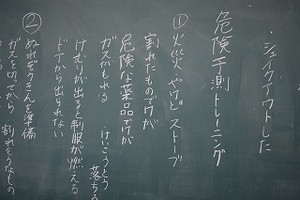 シェイクアウトした
危険予測トレーニング
① 火災 やけど ストーブ
割れたものでケガ
危険な薬品 ケガ
ガスがもれる けいこうとう
落ちる
けむりが出ると制服が燃える
ドアから出られない
② ぬれぞうきんを準備
ガスを切ってから 割れそうなもの